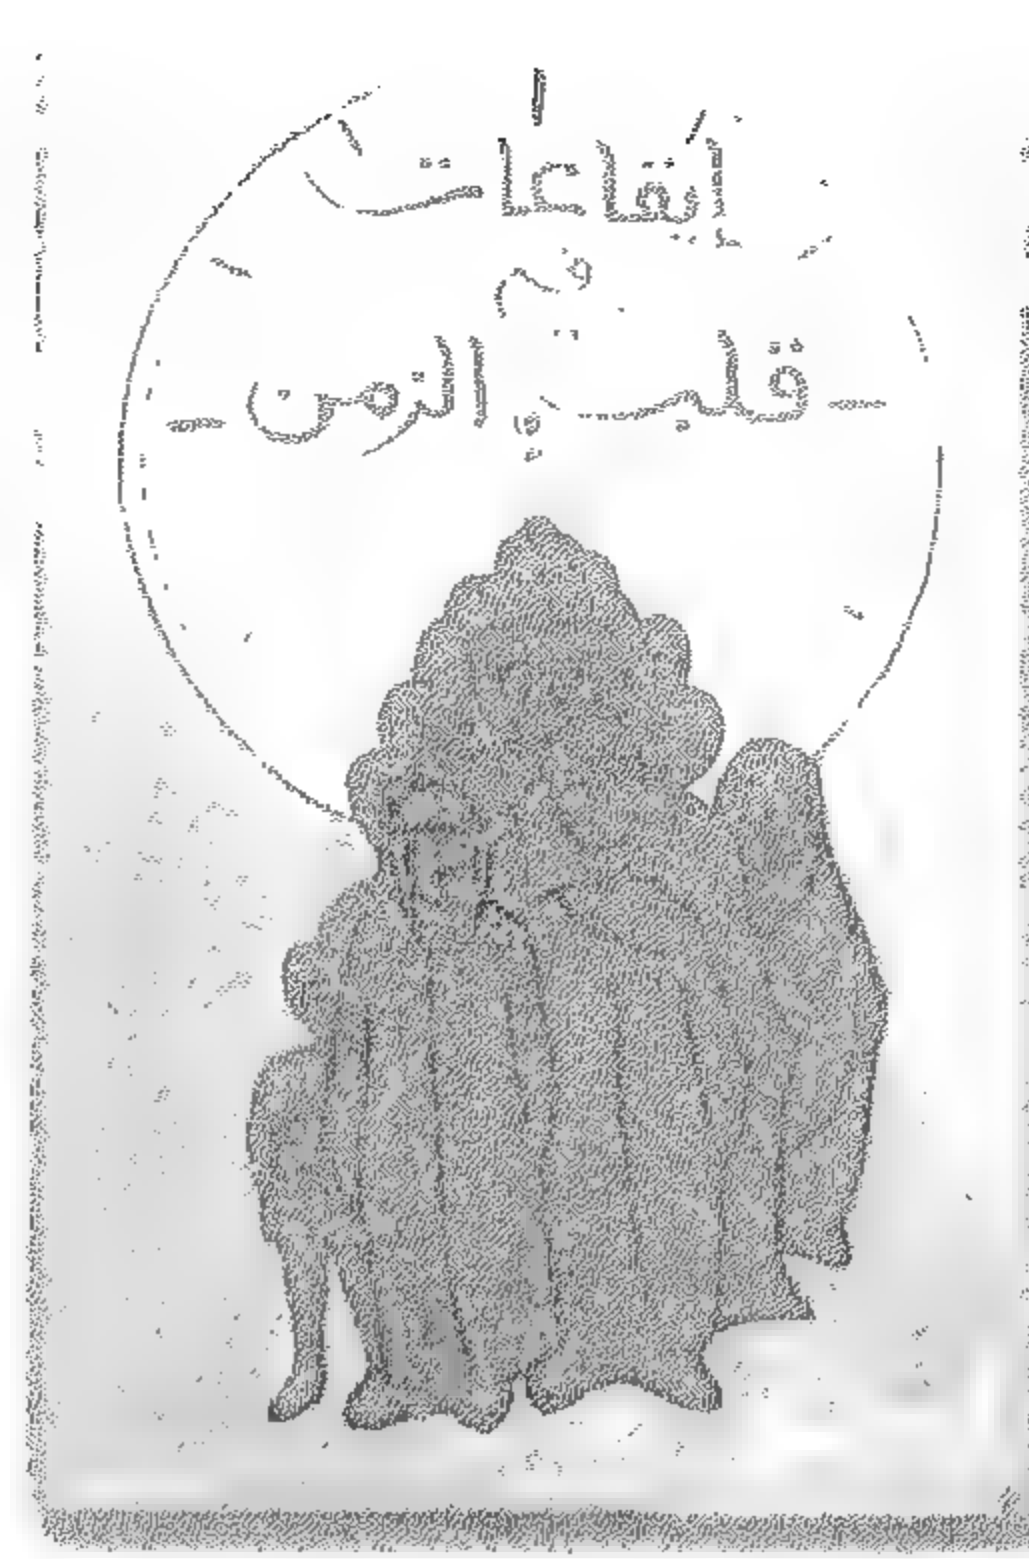 إيقاعات
في
قلب الزمن